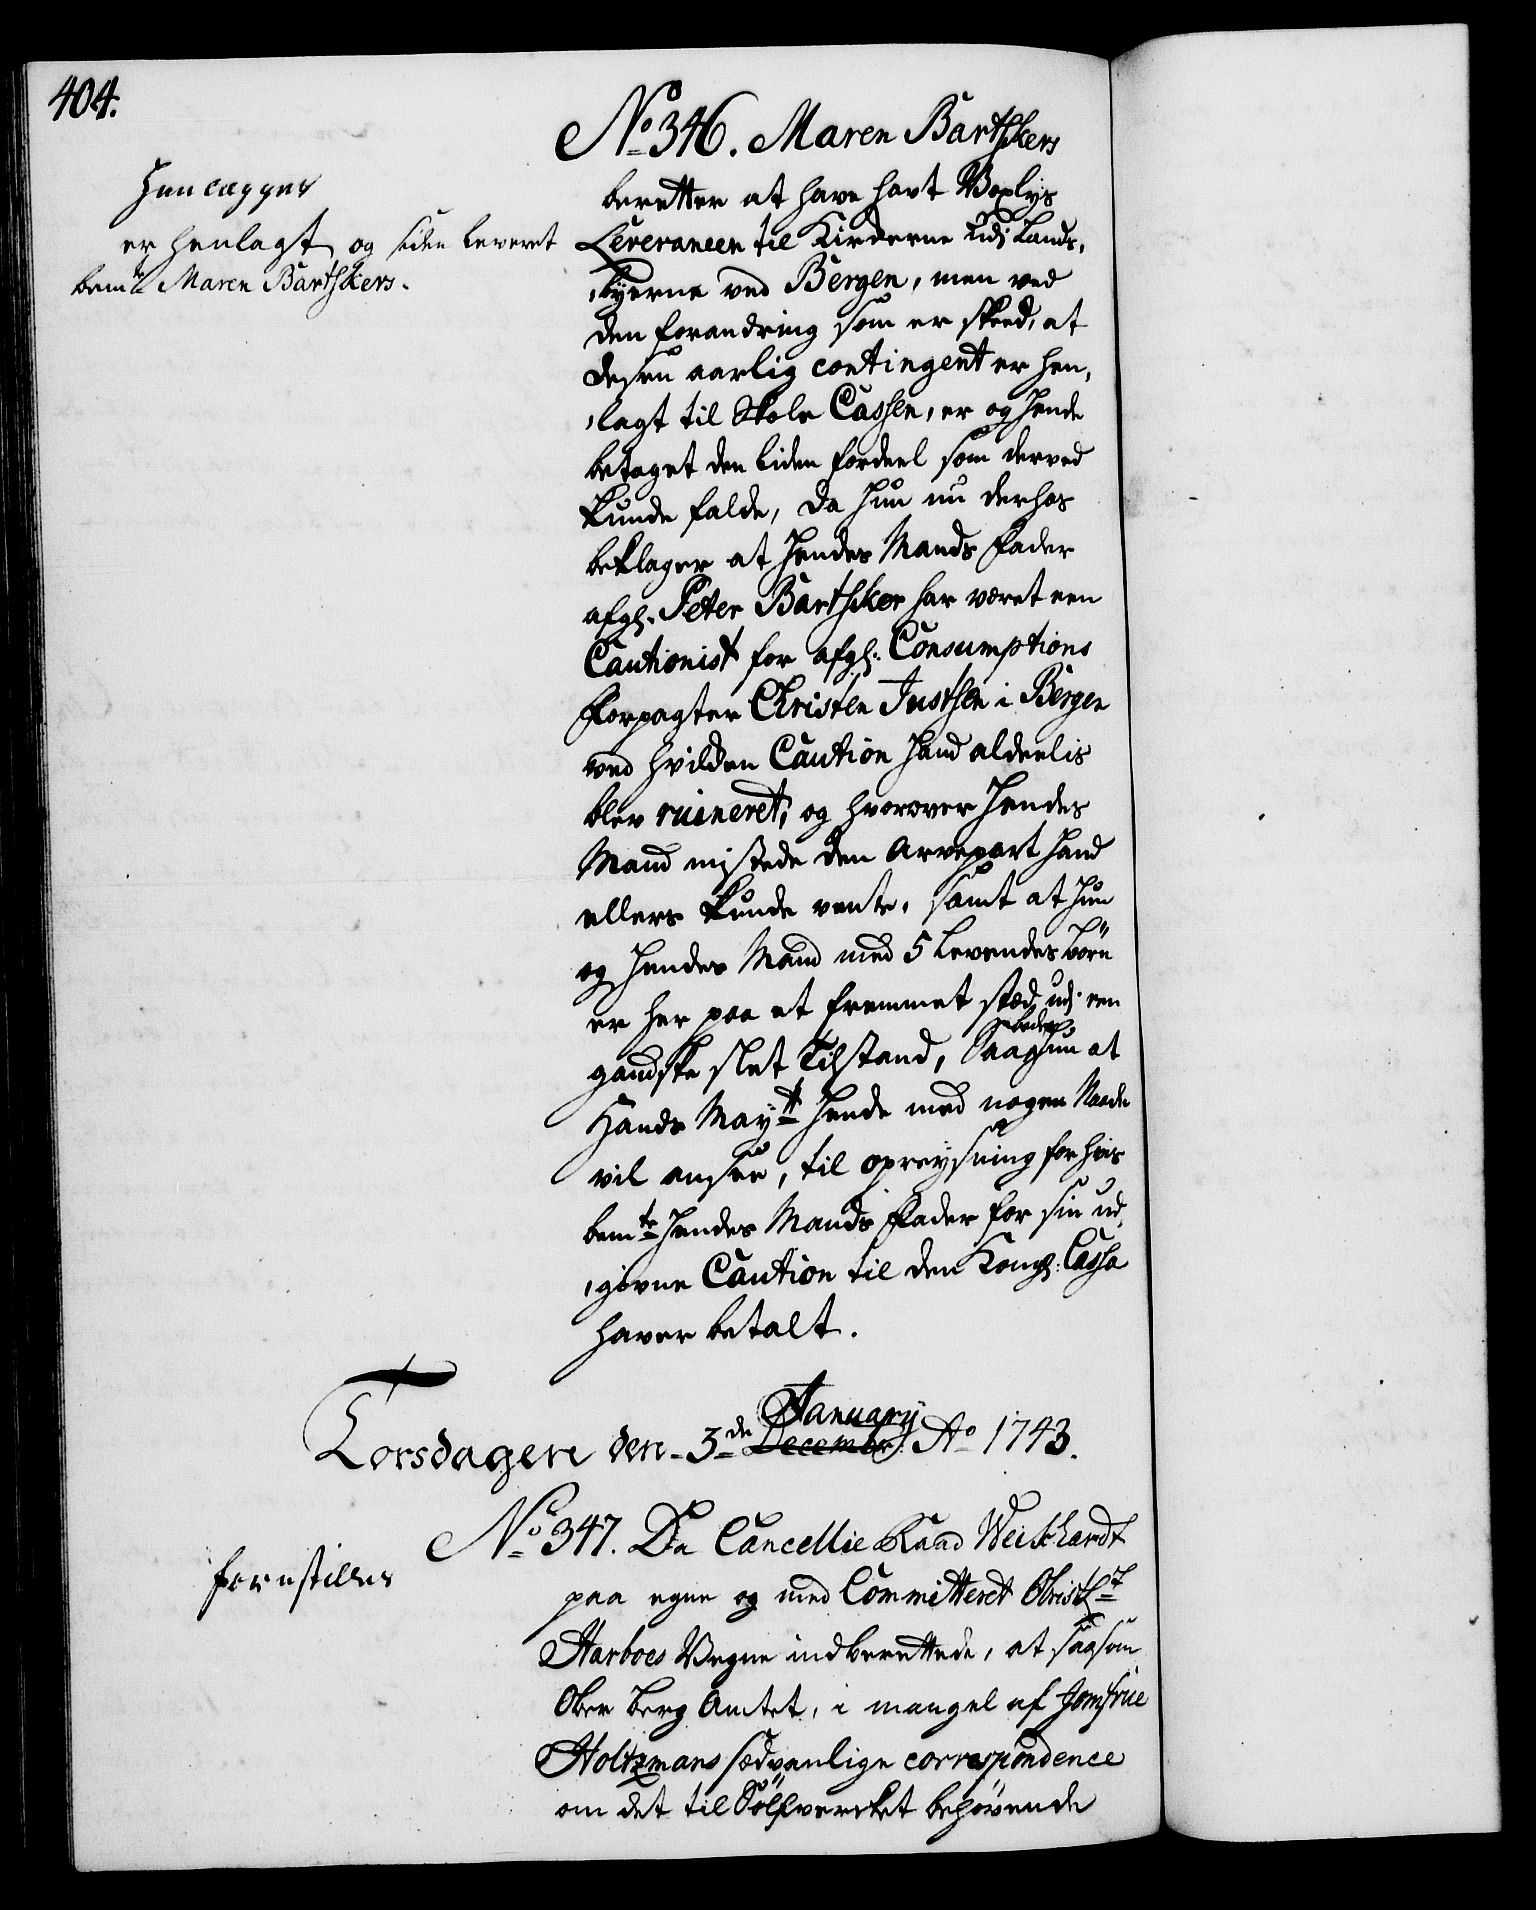 404.
No 346. Maren Bartskers
beretter at have havt Voxlys
Leverancen til Kirderne udi Lands,
,byerne ved Bergen, men ved
den forandring som er skeed, at
desen aarlig contingent er hen,
,lagt til Skole Cassen, er og hende
betaget den liden fordeel som derved
kunde falde, da hun nu derhos
beklager at hendes Mands Fader
afgl. Peter Bartsker har været een
Cautionist for afgl: Consumptions
Forpagter Christen Justsen i Bergen
ved hvilken Caution hand aldeelis
blev ruineret, og hvorover hendes
Mand mistede den Arvepart hand
ellers kunde vente, samt at hun
og hendes Mand med 5 levendes börn
er her paa et fremmet stæd udi een
gandske slet Tilstand, saa beder hun at
Hands Maytt hende med nogen Naade
vil ansee, til opreysning for hvis
bemte hendes Mands Fader for sin ud,
,givne Caution til den Kongl: Cassa
haver betalt.
Henlægges
er henlagt og siden leveret
bemte Maren Bartskers.
Torsdagen den 3de January Ao 1743.
No 347. Da Cancellie Raad Weickhardt
paa egne og med Committeret Obristlt
Harboes Vegne indberettede, at saasom
Ober Berg Amtet, i mangel af Jomfrue
Holtzmans sædvanlige correspondence
om det til Sölfvercket behövende
forestilles